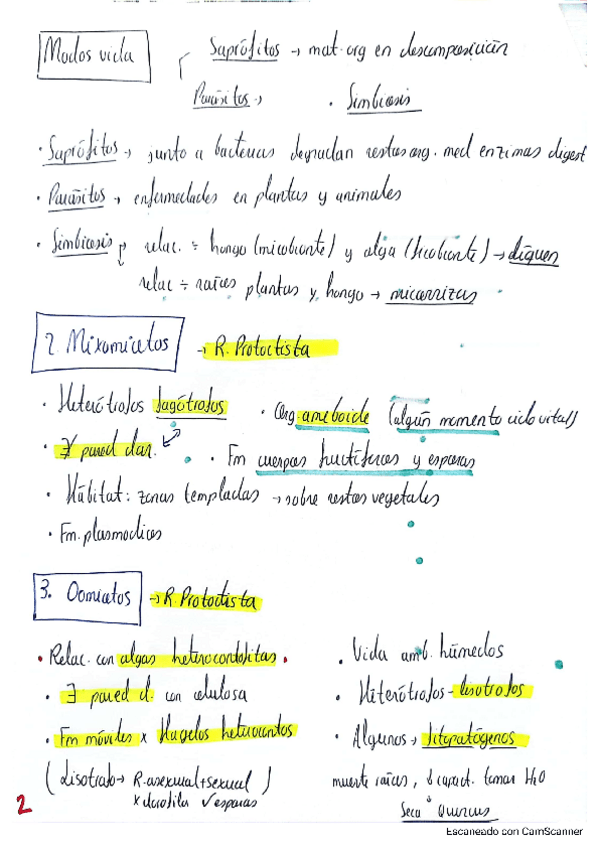 Modos vida
Saprófitos → mat. org en descomposición
Parásitos → · Simbiosis
· Saprófitos → junto a bacterias degradan restos org. med enzimas digest
· Parásitos → enfermedades en plantas y animales
· Simbiosis → relac. ÷ hongo (micobionte) y alga (ficobionte) → líquen
relac ÷ raíces plantas y hongo → micorrizas
2. Mixomicetos → R. Protoctista
· Heterótrofos fagótrofos · Org. ameboide (algún momento ciclo vital)
· ∄ pared clar. · Fm cuerpos fructíferos y esporas
· Hábitat: zonas templadas → sobre restos vegetales
· Fm. plasmodios
3. Oomicetos → R Protoctista
· Relac. con algas heterocontofitas · · Vida amb. húmedos
· ∃ pared cl. con celulosa · Heterótrofos-lisotrofos
· Fm móviles x flagelos heterocontos · Algunos → fitopatógenos
(lisotrofo → R. asexual + sexual) muerte raíces, ↓ capact. tomar H2O
x clorofila ✓ esporas Seca Quercus
2
Escaneado con CamScanner